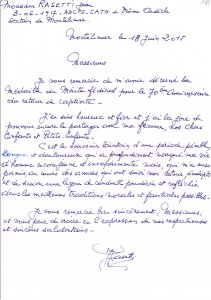 Monsieur RASETTI Jean
2-06-1917-ADCPG-CATM de Drôme Ardèche
Section de Montélimar
Montélimar le 18 juin 2015
Messieurs
Je vous remercie de m'avoir décerné la
Médaille du Mérite fédéral pour le 70ème Anniversaire
du retour de captivité.
J'en suis heureux et fier et j'ai la joie de
pouvoir encore la partager avec ma femme, nos chers
Enfants et Petits Enfants.
C'est le souvenir lointain d'une période pénible
longue et douloureuse qui a profondément marqué ma vie
d'homme et qui m'a
permis, au cours des années qui ont suivi mon retour
et de suivre une ligne de conduite pondérée et réfléchie
dans les meilleures traditions morales et familiales possible.
Je vous remercie bien sincèrement, Messieurs,
et vous prie de croire en l'expression de mes respectueuses
et sincères salutations.